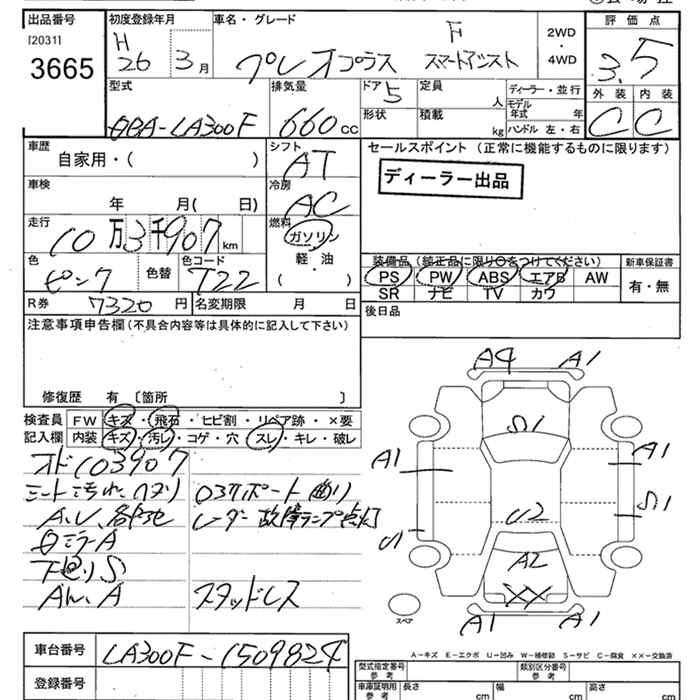 出品番号
[2031]
3665
初度登録年月
H
26 3月
車名・グレード
F
プレオプラス スマートアシスト
2WD
・
4WD
評価点
3.5
外装 内装
C C
型式
DBA-LA300F
排気量
660cc
ドア
5
形状
定員
人
積載
kg
ディーラー・並行
モデル年式 年
ハンドル 左・右
車歴
自家用・( )
シフト
AT
車検
年 月( 日)
冷房
AC
走行
10万3千907km
燃料
ガソリン
軽・油
( )
色
ピンク
色替
色コード
T22
R券 7320円
名変期限 月 日
セールスポイント(正常に機能するものに限ります)
ディーラー出品
装備品(純正品に限り○をつけてください)
PS PW ABS エアB AW
SR ナビ TV カワ
新車保証書
有・無
後日品
注意事項申告欄(不具合内容等は具体的に記入して下さい)
修復歴 有〔箇所 〕
検査員記入欄
FW キズ・飛石・ヒビ割・リペア跡・×要
内装 キズ・汚レ・コゲ・穴・スレ・キレ・破レ
オド103907
シート汚れ、ヘタリ
A.U.各所他
レーダー故障ランプ点灯
ミラーA
下廻りS
スタッドレス
A4 A1
S1
A1 A1
S1
U2
U1
A2
XX
A1 A1
スペア
A－キズ E－エクボ U－凹み W－補修跡 S－サビ C－腐食 ××－交換済
車台番号 LA300F-1509824
登録番号
型式指定番号
参考
類別区分番号
参考
車庫証明用
参考
長さ cm
幅 cm
高さ cm